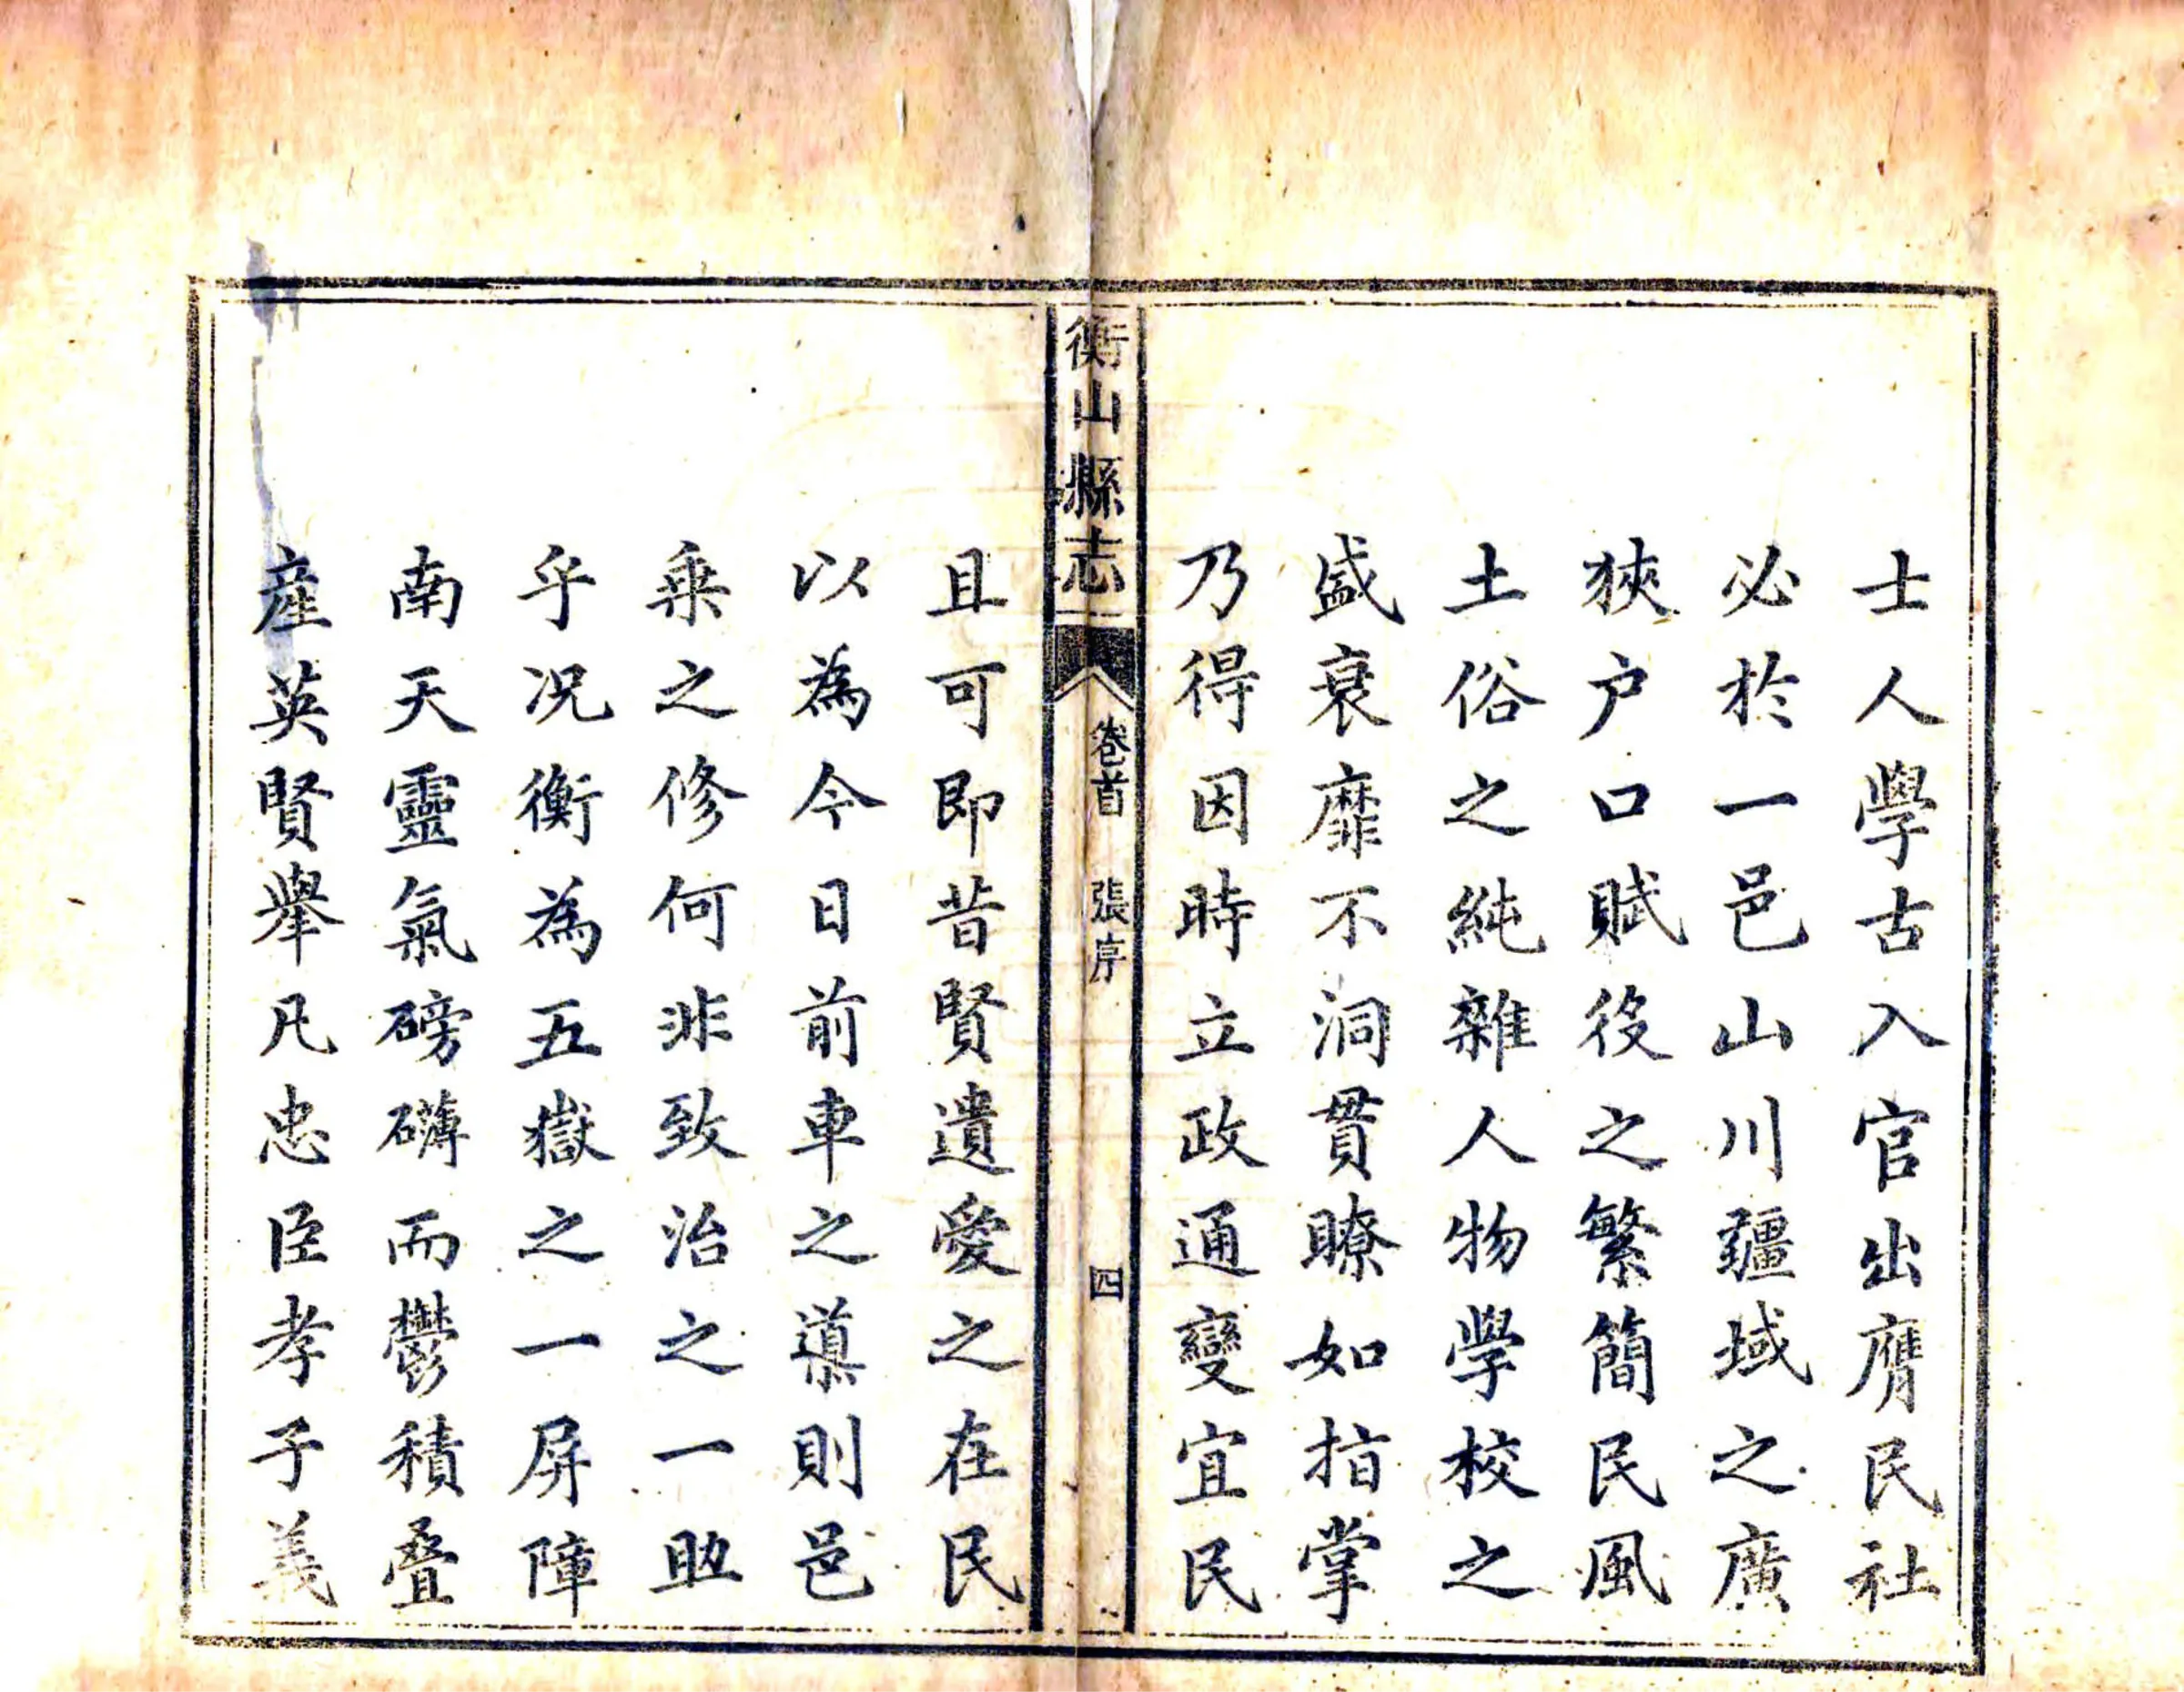 士人學古入官出膺民社
必於一邑山川疆域之廣
狹户口賦役之繁簡民風
土俗之純雜人物學校之
盛衰靡不洞貫瞭如指掌
乃得因時立政通變宜民
衡山縣志
卷首 張序 四
且可即昔賢遺愛之在民
以為今日前車之導則邑
乗之修何非致治之一助
乎况衡為五嶽之一屏障
南天靈氣磅礴而鬱積疊
産英賢舉凡忠臣孝子義